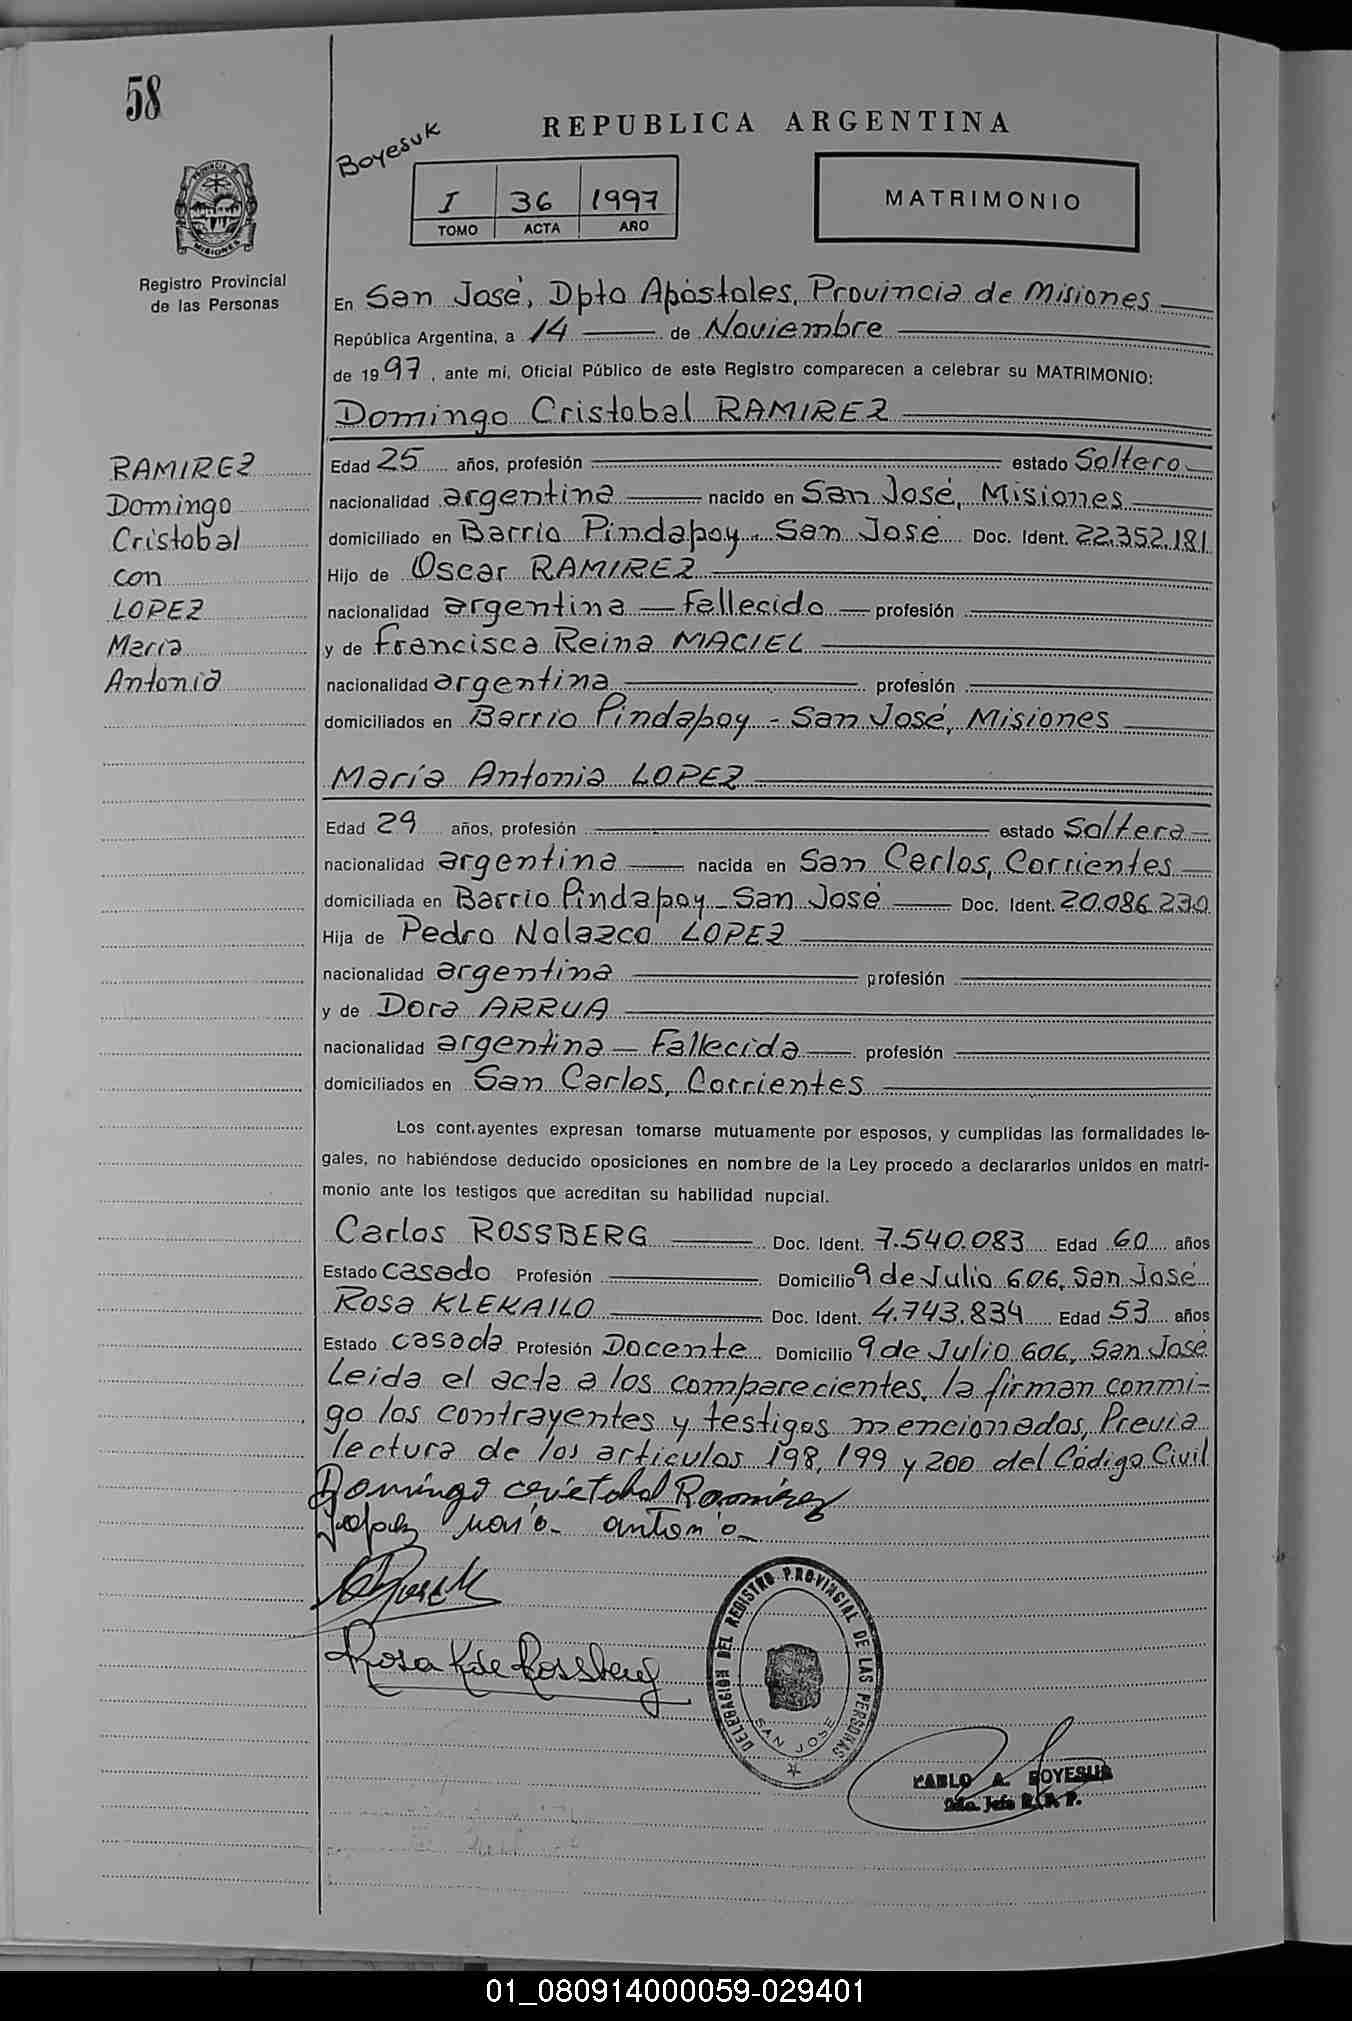 58
Boyesuk
REPUBLICA ARGENTINA
I 36 1997
TOMO ACTA AÑO
MATRIMONIO
PROVINCIA DE MISIONES
Registro Provincial
de las Personas
En San José, Dpto Apóstoles, Provincia de Misiones
República Argentina, a 14 de Noviembre
de 1997, ante mí, Oficial Público de este Registro comparecen a celebrar su MATRIMONIO:
Domingo Cristobal RAMIREZ
RAMIREZ
Domingo
Cristobal
con
LOPEZ
María
Antonia
Edad 25 años, profesión estado Soltero
nacionalidad argentina nacido en San José, Misiones
domiciliado en Barrio Pindapoy - San José Doc. Ident. 22.352.181
Hijo de Oscar RAMIREZ
nacionalidad argentina - Fallecido - profesión
y de Francisca Reina MACIEL
nacionalidad argentina profesión
domiciliados en Barrio Pindapoy - San José, Misiones
María Antonia LOPEZ
Edad 29 años, profesión estado Soltera
nacionalidad argentina nacida en San Carlos, Corrientes
domiciliada en Barrio Pindapoy - San José Doc. Ident. 20.086.230
Hija de Pedro Nolazco LOPEZ
nacionalidad argentina profesión
y de Dora ARRUA
nacionalidad argentina - Fallecida profesión
domiciliados en San Carlos, Corrientes
Los cont.ayentes expresan tomarse mutuamente por esposos, y cumplidas las formalidades le-
gales, no habiéndose deducido oposiciones en nombre de la Ley procedo a declararlos unidos en matri-
monio ante los testigos que acreditan su habilidad nupcial.
Carlos ROSSBERG Doc. Ident. 7.540.083 Edad 60 años
Estado casado Profesión Domicilio 9 de Julio 606, San José
Rosa KLEKAILO Doc. Ident. 4.743.834 Edad 53 años
Estado casada Profesión Docente Domicilio 9 de Julio 606, San José
Leida el acta a los comparecientes, la firman conmi-
go los contrayentes y testigos mencionados, Previa
lectura de los artículos 198, 199 y 200 del Código Civil
Domingo cristobal Ramirez
Lopez maria antonia
Rosa K de Rossberg
DELEGACION DEL REGISTRO PROVINCIAL DE LAS PERSONAS
SAN JOSE
PABLO A. BOYESUK
2do. Jefe R. P. P.
01_080914000059-029401